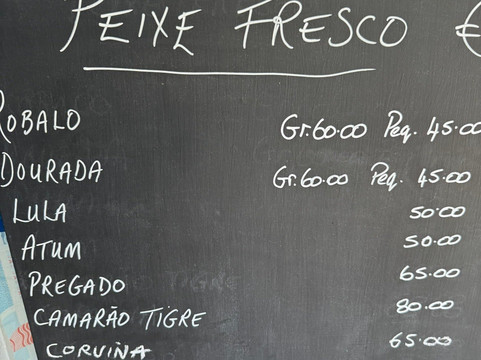 PEIXE FRESCO €
ROBALO Gr.60.00 Peq. 45.00
DOURADA Gr.60.00 Peq. 45.00
LULA 50.00
ATUM 50.00
PREGADO 65.00
CAMARÃO TIGRE 80.00
CORVINA 65.00